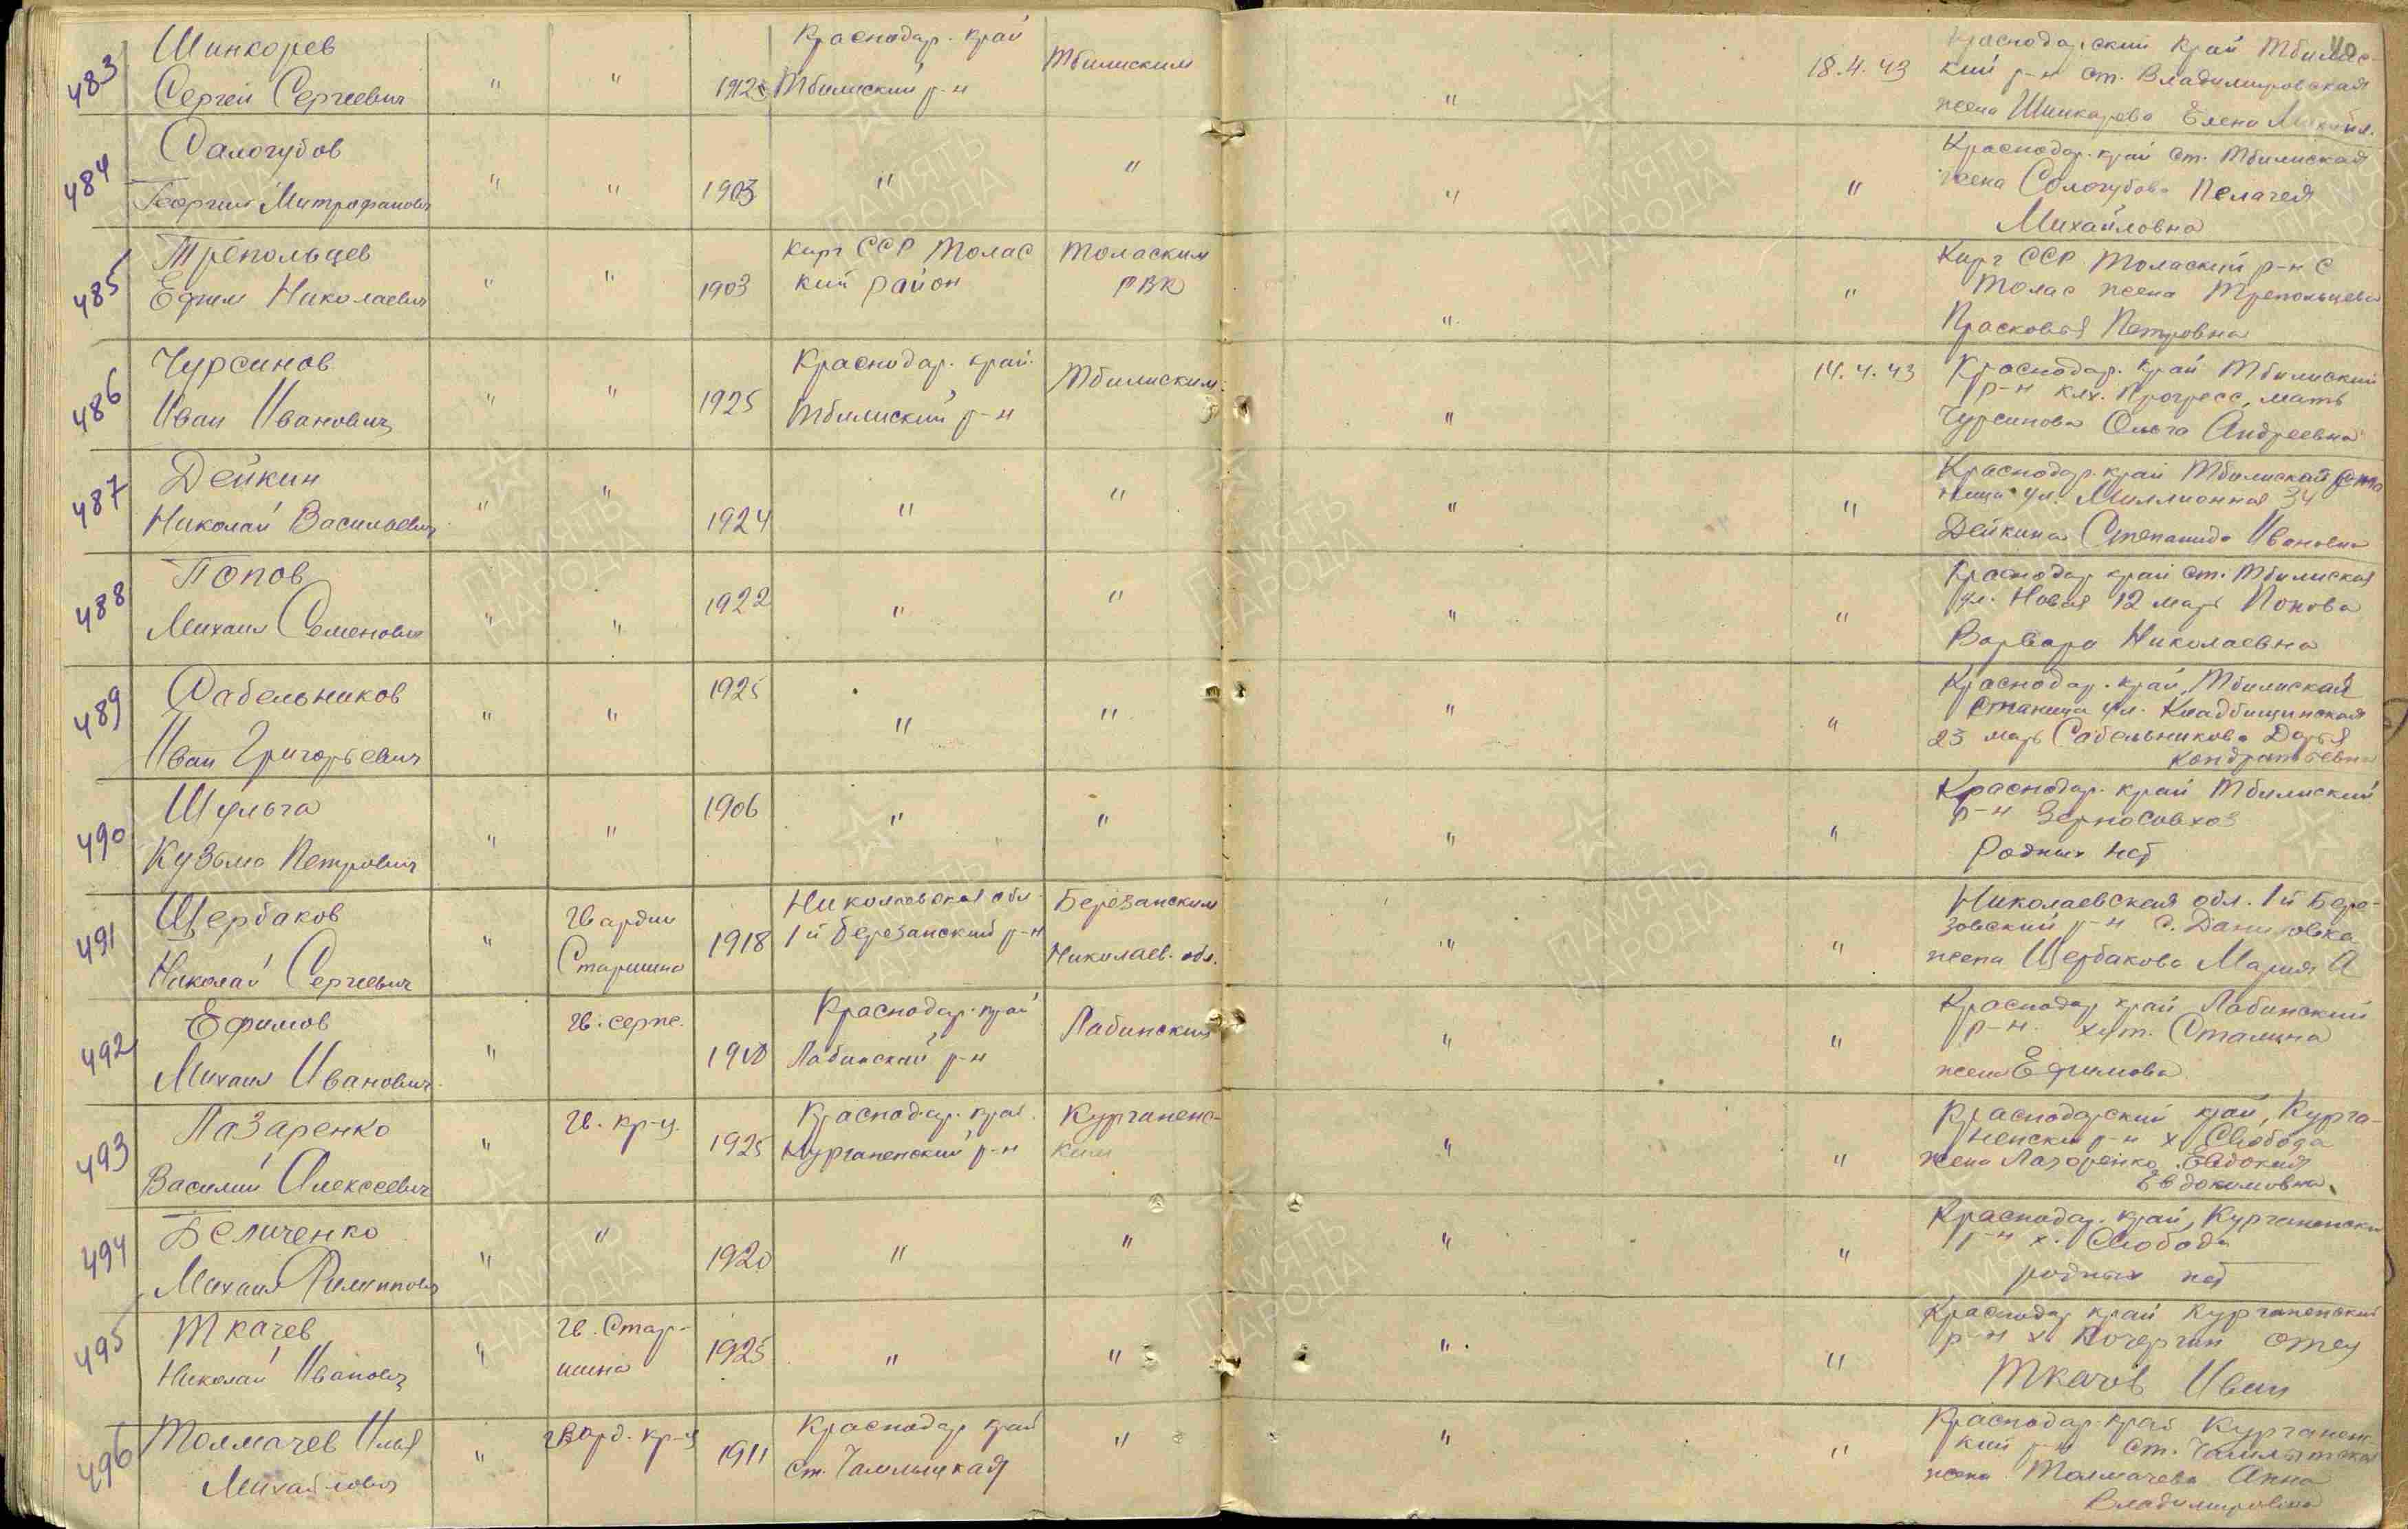 40
483
Шинкорев
Сергей Сергеевич
" " 1925
Краснодар. край
Тбилиский р-н
Тбилиским
" 18.4.43
Краснодарский край Тбилис-
кий р-н ст. Владимировская
жена Шинкарева Елена
484
Салогубов
Георгий Митрофанович
" " 1903 " " " "
Краснодар. край ст. Тбилиская
жена Сологубова Пелагея
Михайловна
485
Трепольцев
Ефим Николаевич
" " 1903
Кирг ССР Толас
кий район
Толаским
РВК
" "
Кирг ССР Толаский р-н с
Толас жена Трепольцева
Прасковья Петровна
486
Чурсинов
Иван Иванович
" " 1925
Краснодар. край.
Тбилиский р-н
Тбилиским
" 14.4.43
Краснодар. край Тбилиский
р-н клх. Прогресс, мать
Чурсинова Ольга Андреевна
487
Дейкин
Николай Васильевич
" " 1924 " " " "
Краснодар. край Тбилиская ста
ница ул. Миллионная 34
Дейкина Степанида Ивановна
488
Попов
Михаил Семенович
" " 1922 " " " "
Краснодар край ст. Тбилиская
ул. Новая 12 мать Попова
Варвара Николаевна
489
Сабельников
Иван Григорьевич
" " 1925 " " " "
Краснодар. край, Тбилиская
станица ул. Кладбищинская
23 мать Сабельникова Дарья
Кондратьевна
490
Шульга
Кузьма Петрович
" " 1906 " " " "
Краснодар. край Тбилиский
р-н Зерносовхоз
Родных нет
491
Щербаков
Николай Сергеевич
"
Гвардии
Старшина
1918
Николаевская обл.
1й Березанский р-н
Березанским
Николаев. обл.
" "
Николаевская обл. 1й Бере-
зовский р-н с. Даниловка
жена Щербакова Мария А
492
Ефимов
Михаил Иванович
"
Гв. серж.
1910
Краснодар. край
Лабинский р-н
Лабинским
" "
Краснодар край Лабинский
р-н. хут. Сталина
жена Ефимова
493
Лазаренко
Василий Алексеевич
"
Гв. кр-ц.
1925
Краснодар. край
Курганенский р-н
Курганенс-
ким
" "
Краснодарский край, Курга-
ненский р-н х. Свобода
жена Лазоренко Евдокия
Евдокимовна
494
Беличенко
Михаил Филиппович
" " 1920 " " " "
Краснодар. край, Курганенский
р-н х. Свобода
родных нет
495
Ткачев
Николай Иванович
"
Гв. Стар-
шина
1925 " " " "
Краснодар край Курганенский
р-н х. Кочергин отец
Ткачов Иван
496
Толмачев Илья
Михайлович
"
Гвард. кр-ц
1911
Краснодар край
ст. Чамлыкская
" " "
Краснодар. край Курганенс
кий р-н ст.
жена Толмачева Анна
Владимировна
ПАМЯТЬ
НАРОДА